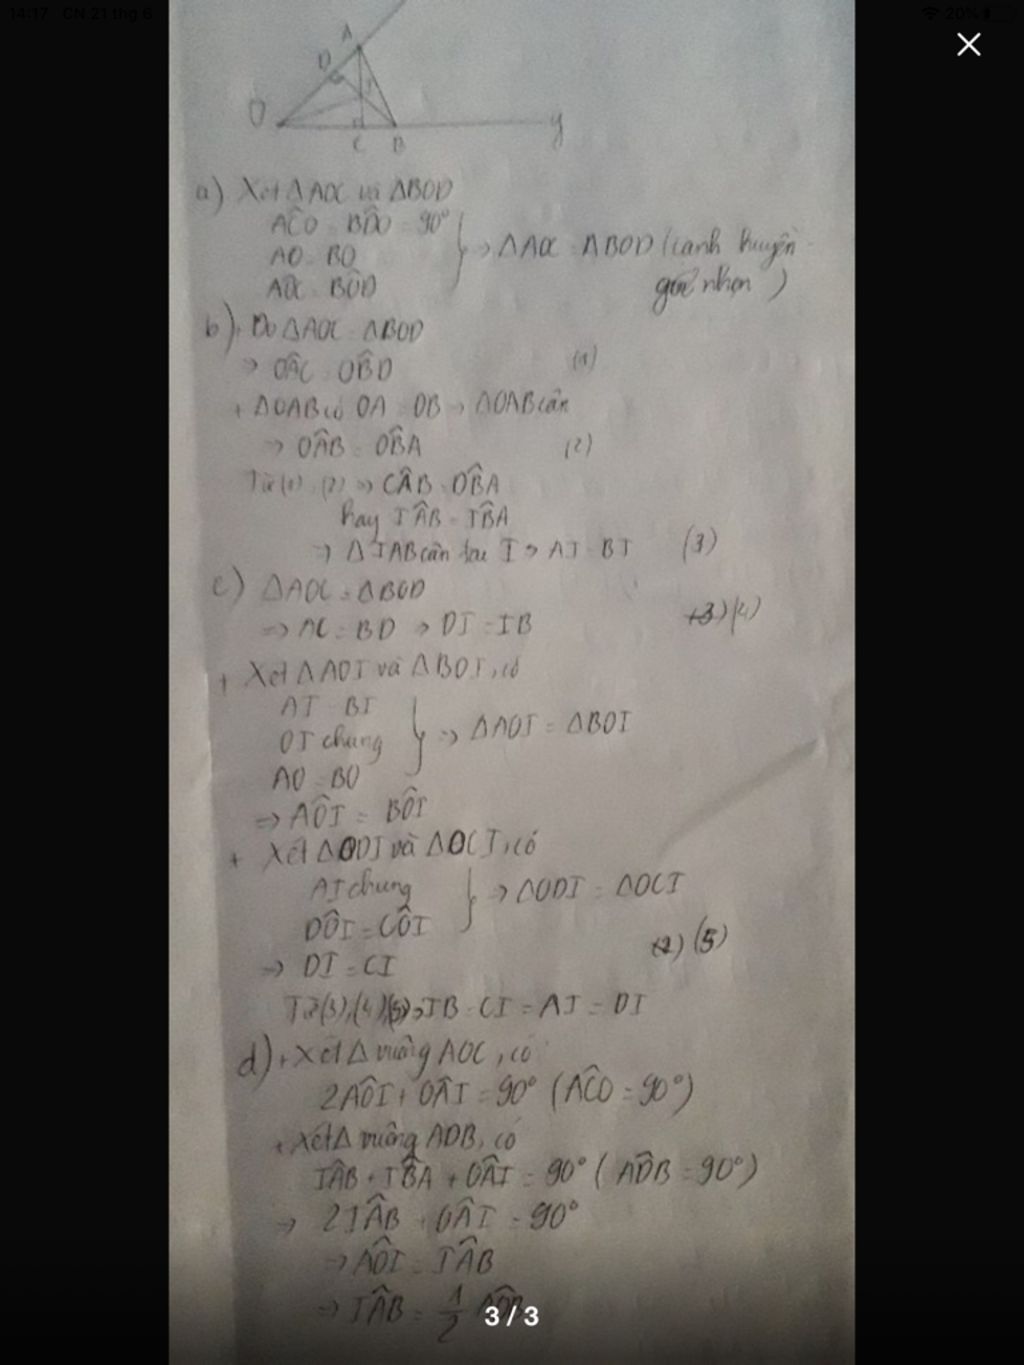 14:17 CN 21 thg 6
20%
A
D
I
O
C B
y
a) Xét ΔAOC và ΔBOD
AĈO = BD̂O = 90°
AO = BO
AÔC = BÔD
=> ΔAOC = ΔBOD (cạnh huyền
góc nhọn)
b) + Do ΔAOC = ΔBOD
=> OÂC = OB̂D (1)
+ ΔOAB có OA = OB => ΔOAB cân
=> OÂB = OB̂A (2)
Từ (1), (2) => CÂB = DB̂A
hay IÂB = IB̂A
=> ΔIAB cân tại I => AI = BI (3)
c) ΔAOC = ΔBOD
=> AC = BD => DI = IB (4)
+ Xét ΔAOI và ΔBOI, có
AI = BI
OI chung
AO = BO
=> ΔAOI = ΔBOI
=> AÔI = BÔI
+ Xét ΔODI và ΔOCI, có
AI chung
DÔI = CÔI
=> ΔODI = ΔOCI
=> DI = CI (5)
Từ (3), (4), (5) => IB = CI = AI = DI
d) + Xét Δ vuông AOC, có
2AÔI + OÂI = 90° (AĈO = 90°)
+ Xét Δ vuông ADB, có
IÂB + IB̂A + OÂI = 90° (AD̂B = 90°)
=> 2IÂB + OÂI = 90°
=> AÔI = IÂB
=> IÂB = 1/2 AÔB
3 / 3